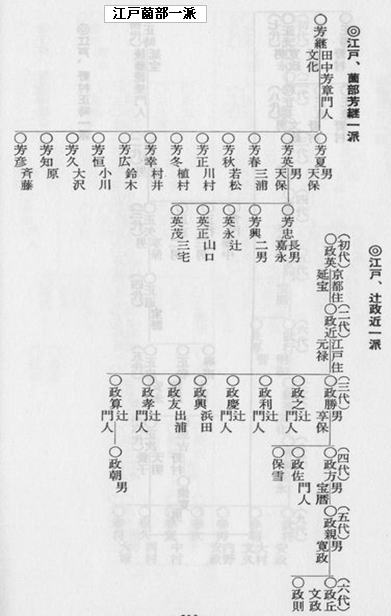 江戸薗部一派
◎江戸、薗部芳継一派
○芳継 田中芳章門人 文化
○芳夏 男 天保
○芳英 男 天保
○芳春 三浦
○芳秋 若松
○芳正 川村
○芳冬 植村
○芳幸 村井
○芳広 鈴木
○芳恒 小川
○芳久 大沢
○芳知 原
○芳彦 斉藤
○芳忠 長男 嘉永
○芳興 二男
○英永 辻
○英正 山口
○英茂 三宅
◎江戸、辻政近一派
(初代)
○政英 京都住 延宝
(二代)
○政近 江戸住 元禄
(三代)
○政勝 男 享保
○政之 辻門人
○政利 辻門人
○政慶 辻門人
○政興 浜田
○政友 出浦
○政孝 辻門人
○政算 辻門人
○政朝 男
(四代)
○政方 男 宝暦
○政佐 門人
○保雪
(五代)
○政親 男 寛政
(六代)
○政丘 文政
○政則